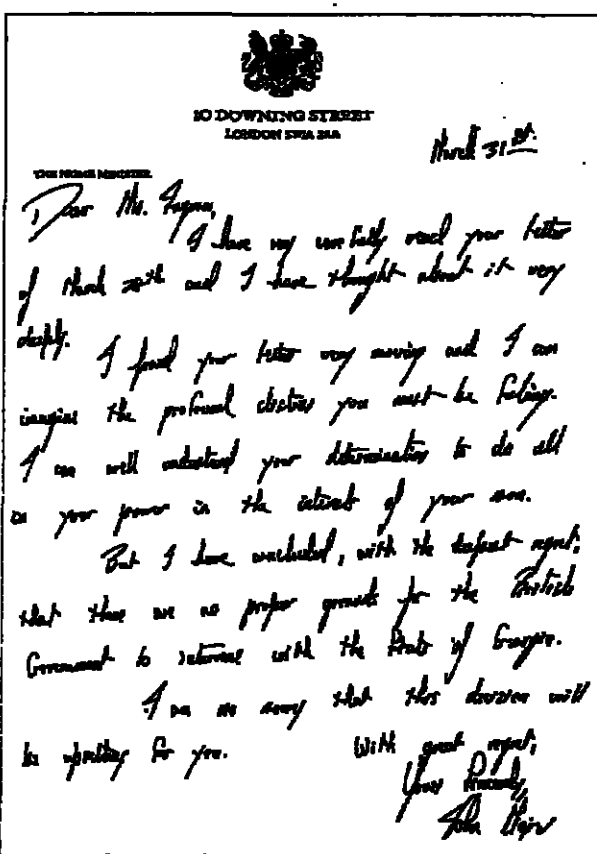 10 DOWNING STREET
LONDON SW1A 2AA
March 31st.
THE PRIME MINISTER
Dear Mrs. Fagan,
I have very carefully read your letter
of March 20th and I have thought about it very
deeply.
I found your letter very moving and I can
imagine the profound distress you must be feeling.
I can well understand your determination to do all
in your power in the interests of your son.
But I have concluded, with the deepest regret,
that there are no proper grounds for the British
Government to intervene with the State of Georgia.
I am so sorry that this decision will
be upsetting for you.
With great regret,
Yours Sincerely,
John Major